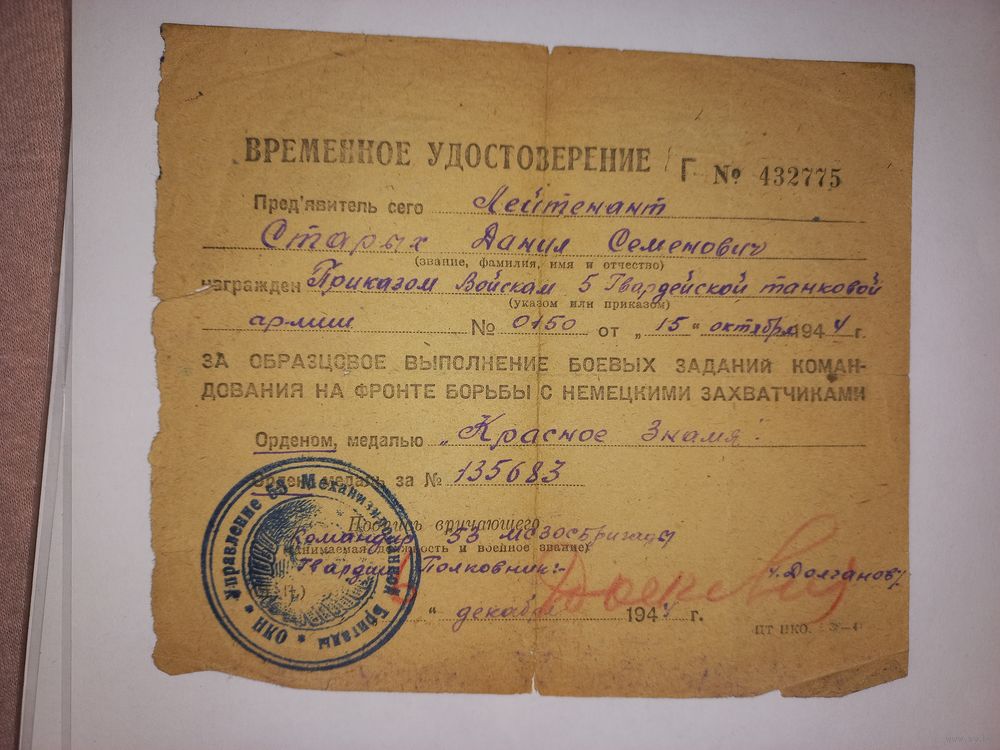 ВРЕМЕННОЕ УДОСТОВЕРЕНИЕ Г № 432775
Пред'явитель сего Лейтенант
Старых Данил Семенович
(звание, фамилия, имя и отчество)
награжден Приказом Войскам 5 Гвардейской танковой
(указом или приказом)
армии № 0150 от „15" октября 1944 г.
ЗА ОБРАЗЦОВОЕ ВЫПОЛНЕНИЕ БОЕВЫХ ЗАДАНИЙ КОМАН-
ДОВАНИЯ НА ФРОНТЕ БОРЬБЫ С НЕМЕЦКИМИ ЗАХВАТЧИКАМИ
Орденом, медалью „Красное Знамя"
Орден, медаль за № 135683
Подпись вручающего
Командир 53 мозосбригады
(занимаемая должность и военное звание)
Гвардии Полковник:- /Долганов/
" декабря 1944 г.
Управление 53 Механизированной Бригады * ОЛН *